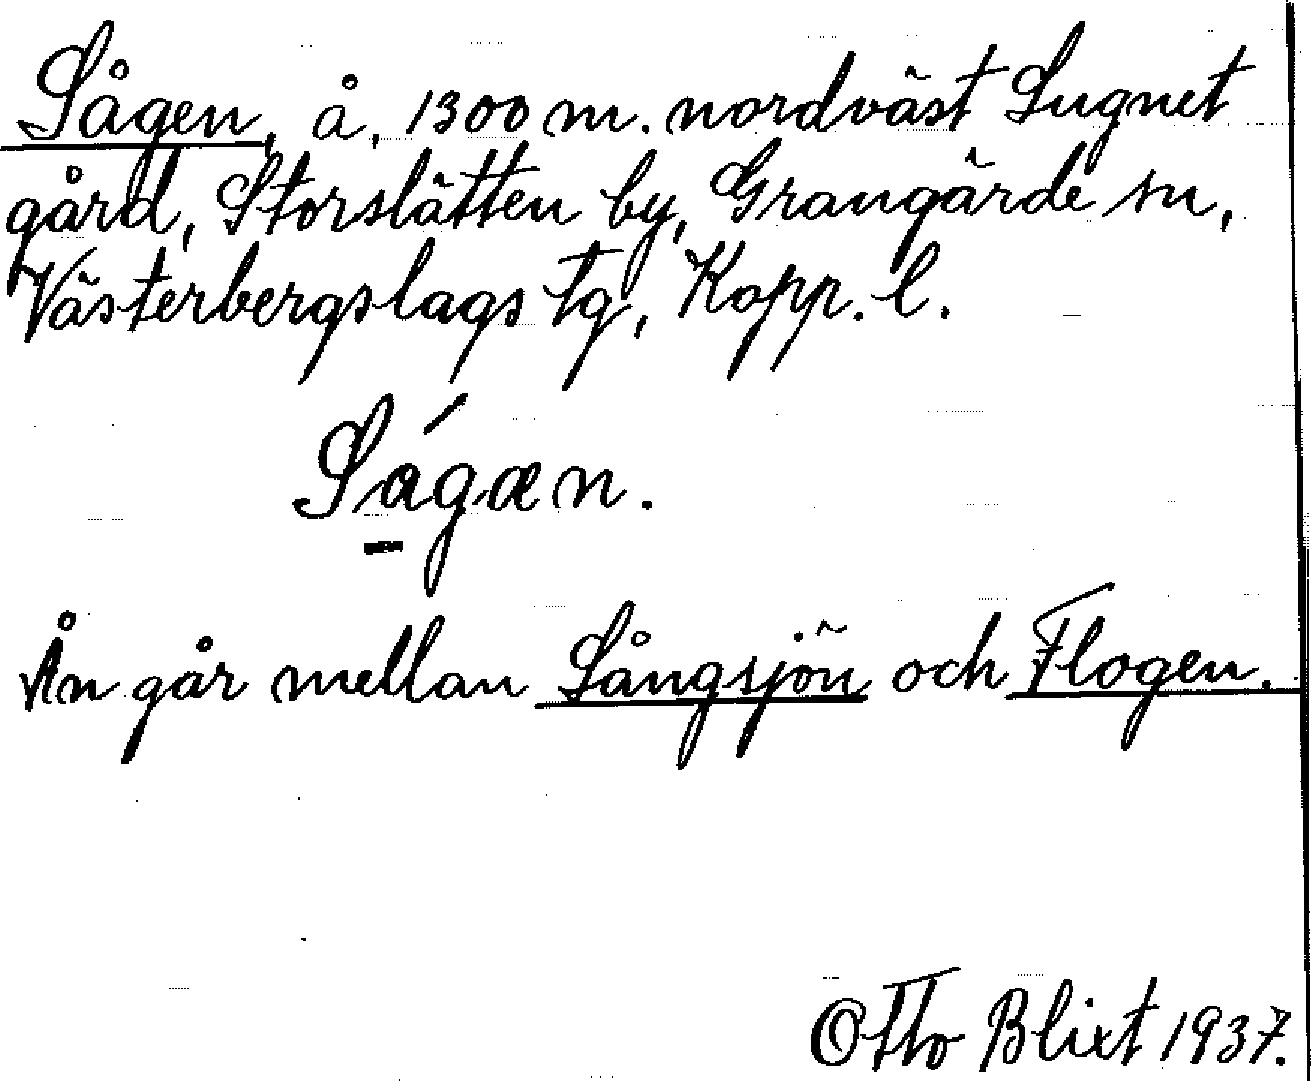 Sågen, å, 1300 m. nordväst Lugnet
gård, Storslätten by, Grangärde sn,
Västerbergslags tg, Kopp. l.
Ságæn.
Ån går mellan Sångsjön och Flogen.
Otto Blixt 1937.